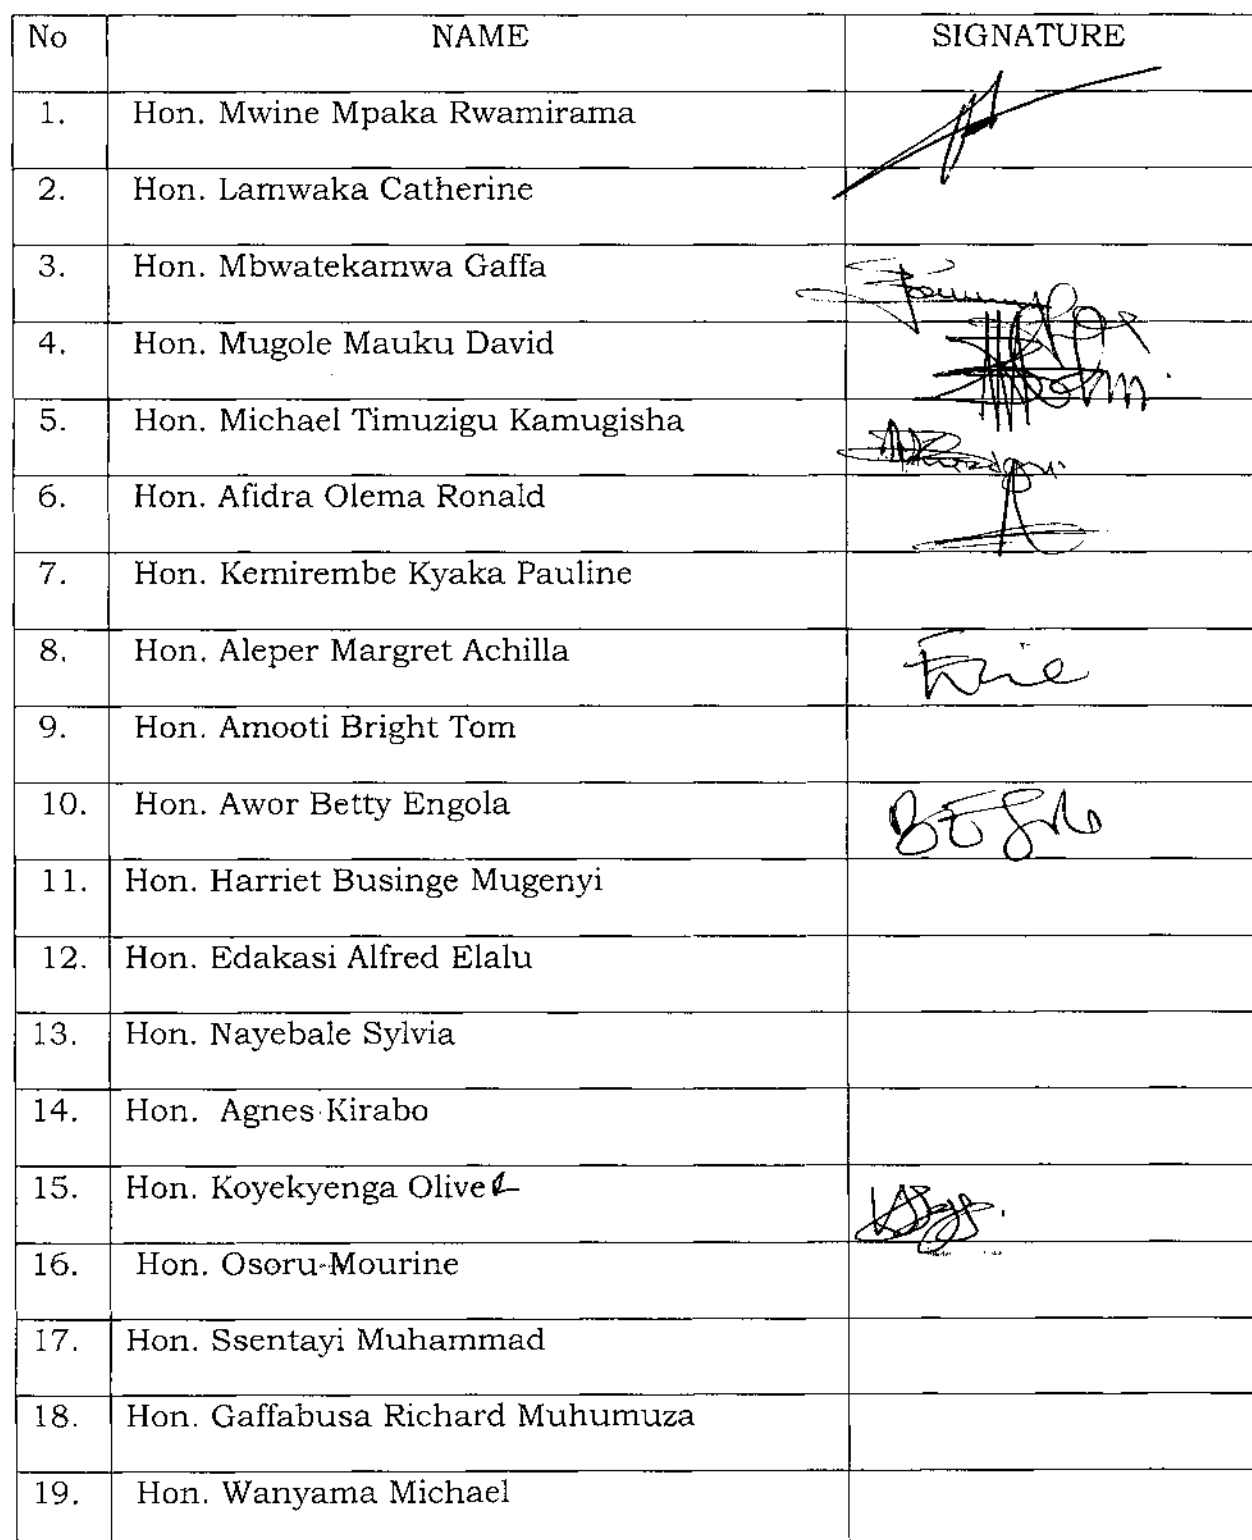 No NAME SIGNATURE
1. Hon. Mwine Mpaka Rwamirama
2. Hon. Lamwaka Catherine
3. Hon. Mbwatekamwa Gaffa
4. Hon. Mugole Mauku David
5. Hon. Michael Timuzigu Kamugisha
6. Hon. Afidra Olema Ronald
7. Hon. Kemirembe Kyaka Pauline
8. Hon. Aleper Margret Achilla
9. Hon. Amooti Bright Tom
10. Hon. Awor Betty Engola
11. Hon. Harriet Businge Mugenyi
12. Hon. Edakasi Alfred Elalu
13. Hon. Nayebale Sylvia
14. Hon. Agnes Kirabo
15. Hon. Koyekyenga Olive
16. Hon. Osoru Mourine
17. Hon. Ssentayi Muhammad
18. Hon. Gaffabusa Richard Muhumuza
19. Hon. Wanyama Michael